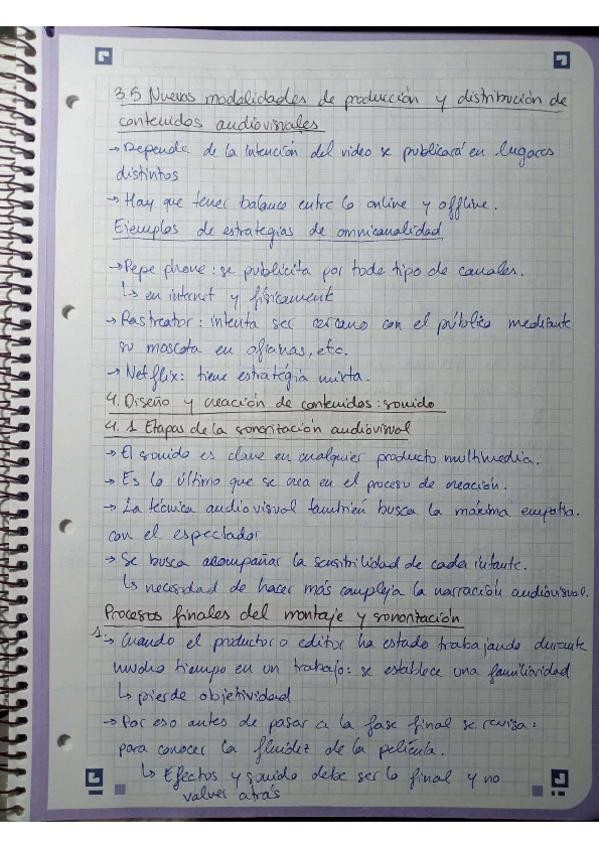 3.5 Nuevas modalidades de producción y distribución de
contenidos audiovisuales
→ Depende de la intención del video se publicará en lugares
distintos
→ Hay que tener balance entre lo online y offline.
Ejemplos de estrategias de omnicanalidad
→ Pepe phone: se publicita por todo tipo de canales.
↳ en internet y físicamente
→ Rastreator: intenta ser cercano con el público mediante
su mascota en oficinas, etc.
→ Netflix: tiene estratégia mixta.
4. Diseño y creación de contenidos: sonido
4.1 Etapas de la sonorización audiovisual
→ El sonido es clave en cualquier producto multimedia.
→ Es lo último que se crea en el proceso de creación.
→ La técnica audiovisual también busca la máxima empatía
con el espectador
→ Se busca acompañar la sensibilidad de cada instante.
↳ necesidad de hacer más compleja la narración audiovisual.
Procesos finales del montaje y sonorización
1. → Cuando el productor o editor ha estado trabajando durante
mucho tiempo en un trabajo: se establece una familiaridad
↳ pierde objetividad
→ Por eso antes de pasar a la fase final se revisa:
para conocer la fluidez de la película.
↳ Efectos y sonido debe ser lo final y no
volver atrás